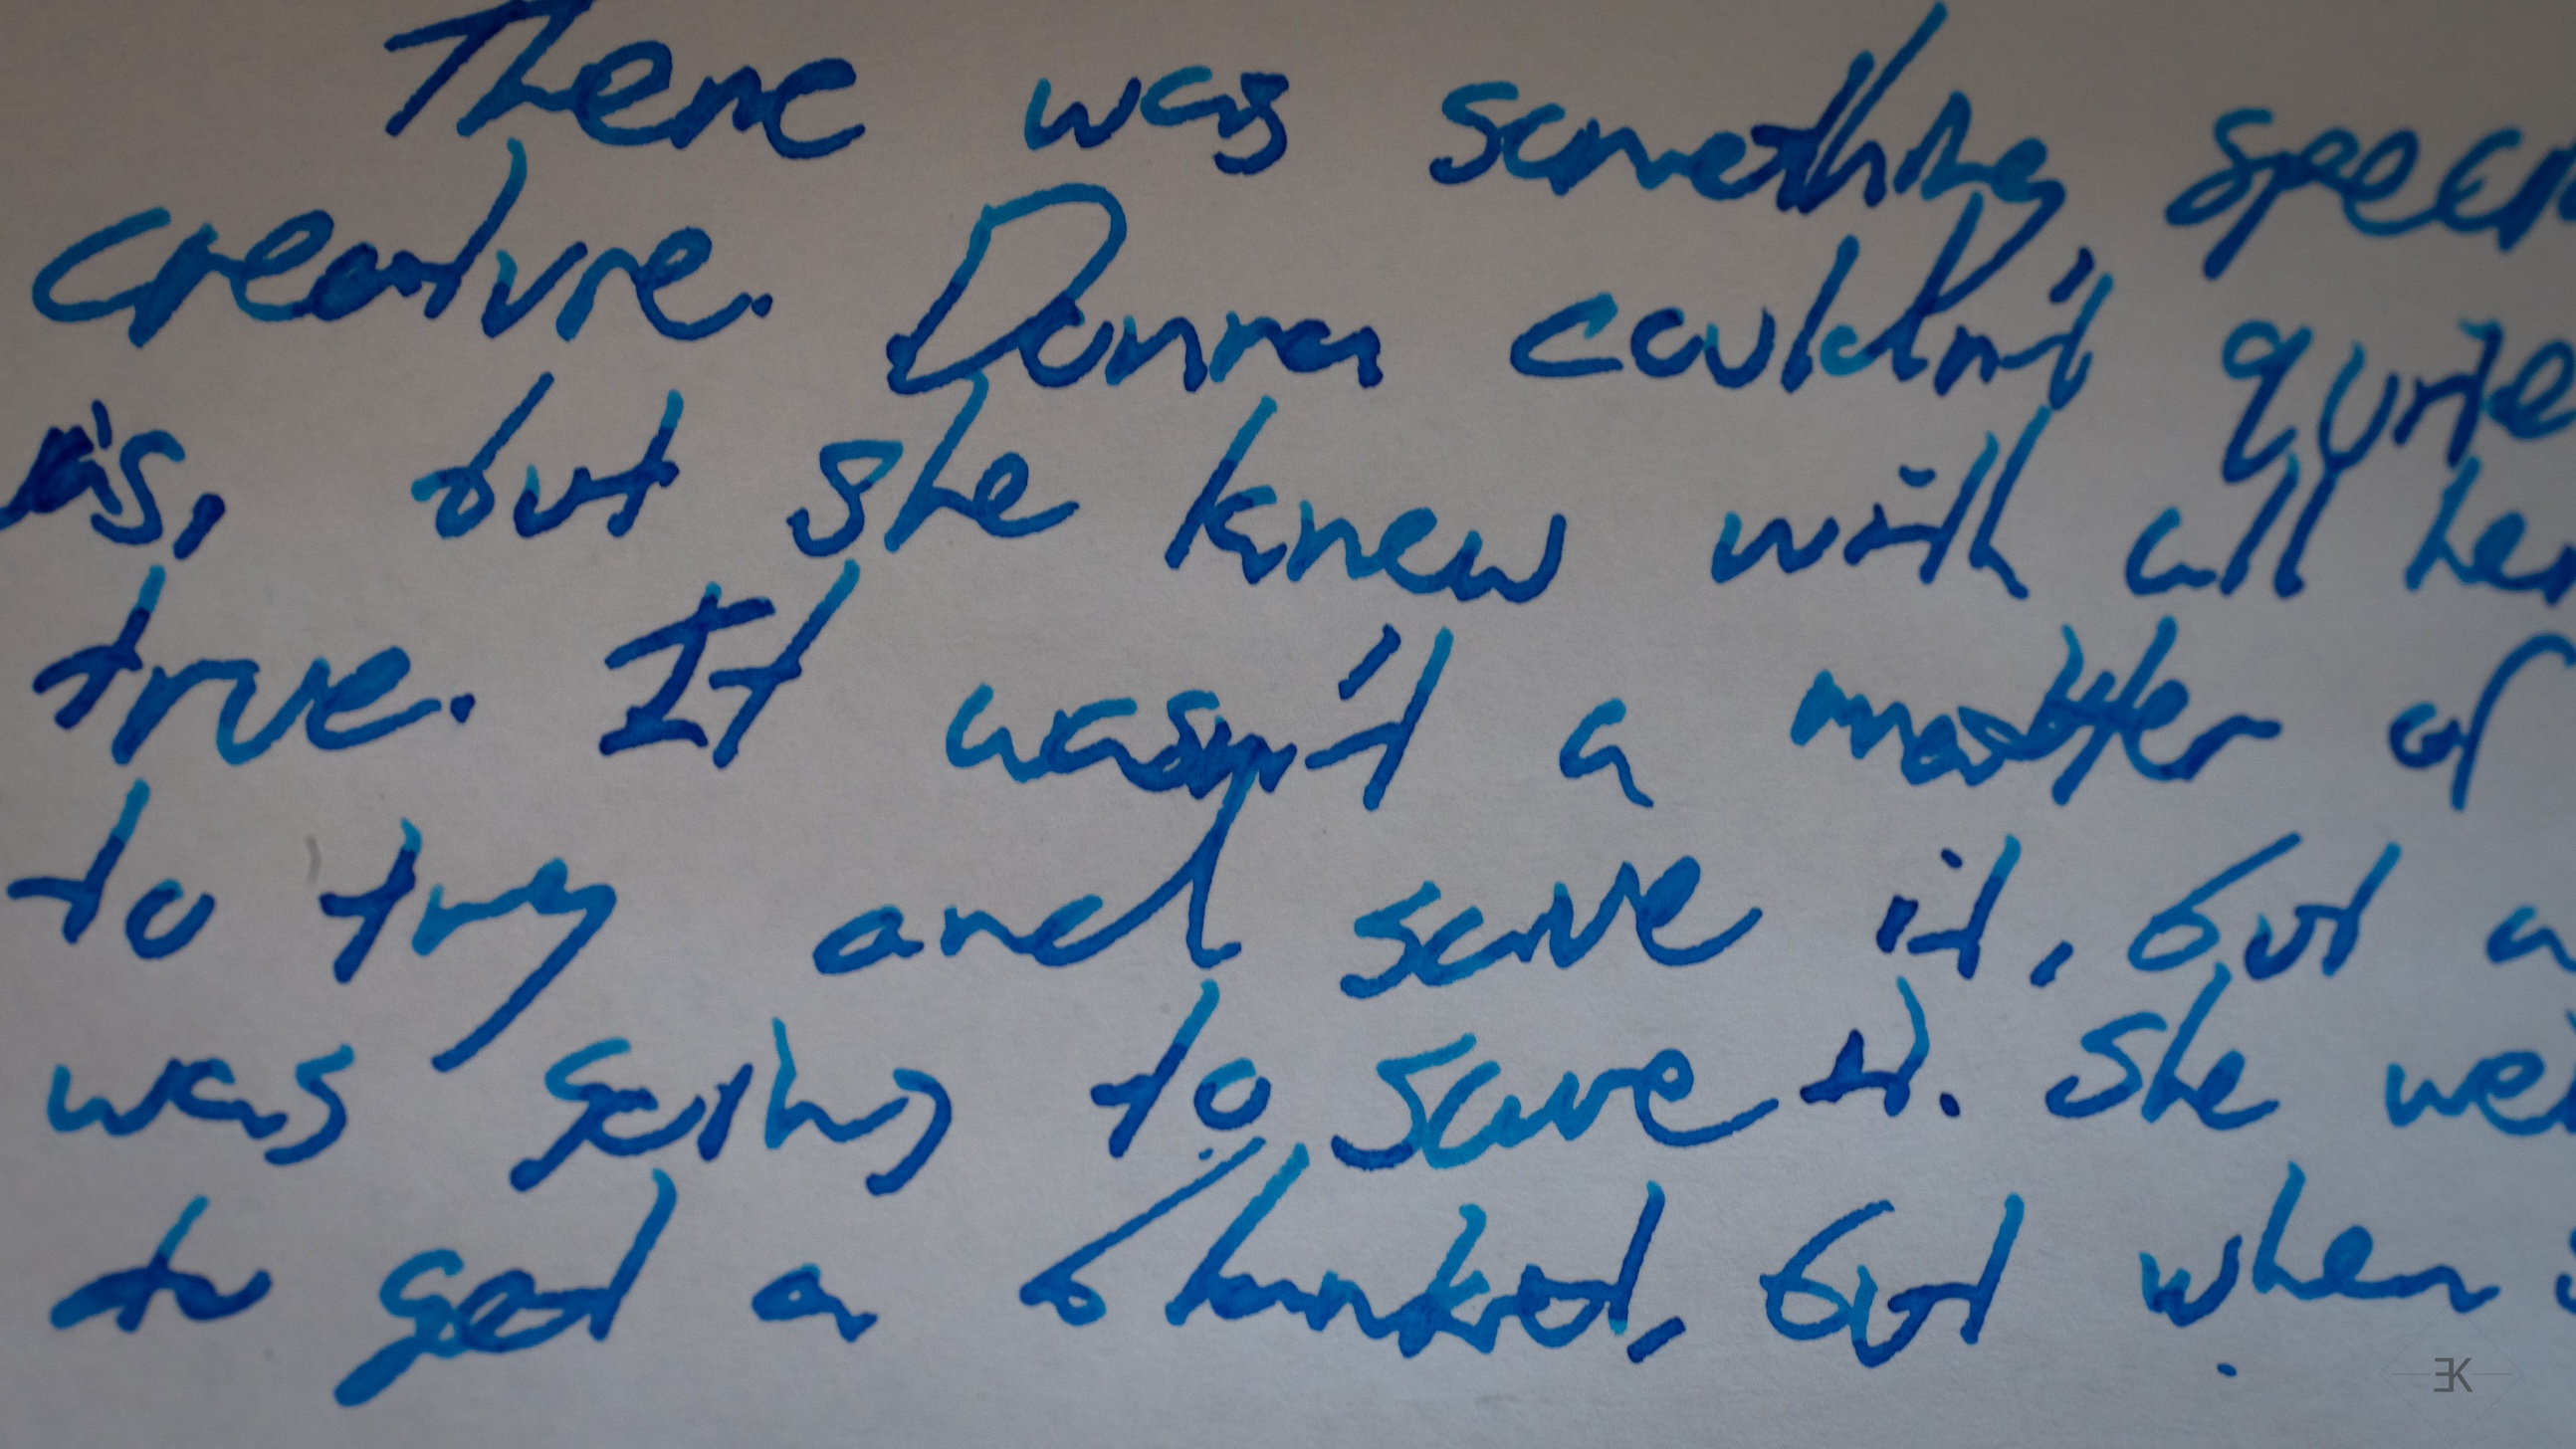 There was something speci
creature. Donna couldn't quite
is, but she knew with all her
true. It wasn't a matter of
to try and save it, but a
was going to save it. She we
to get a blanket, but when s
EK